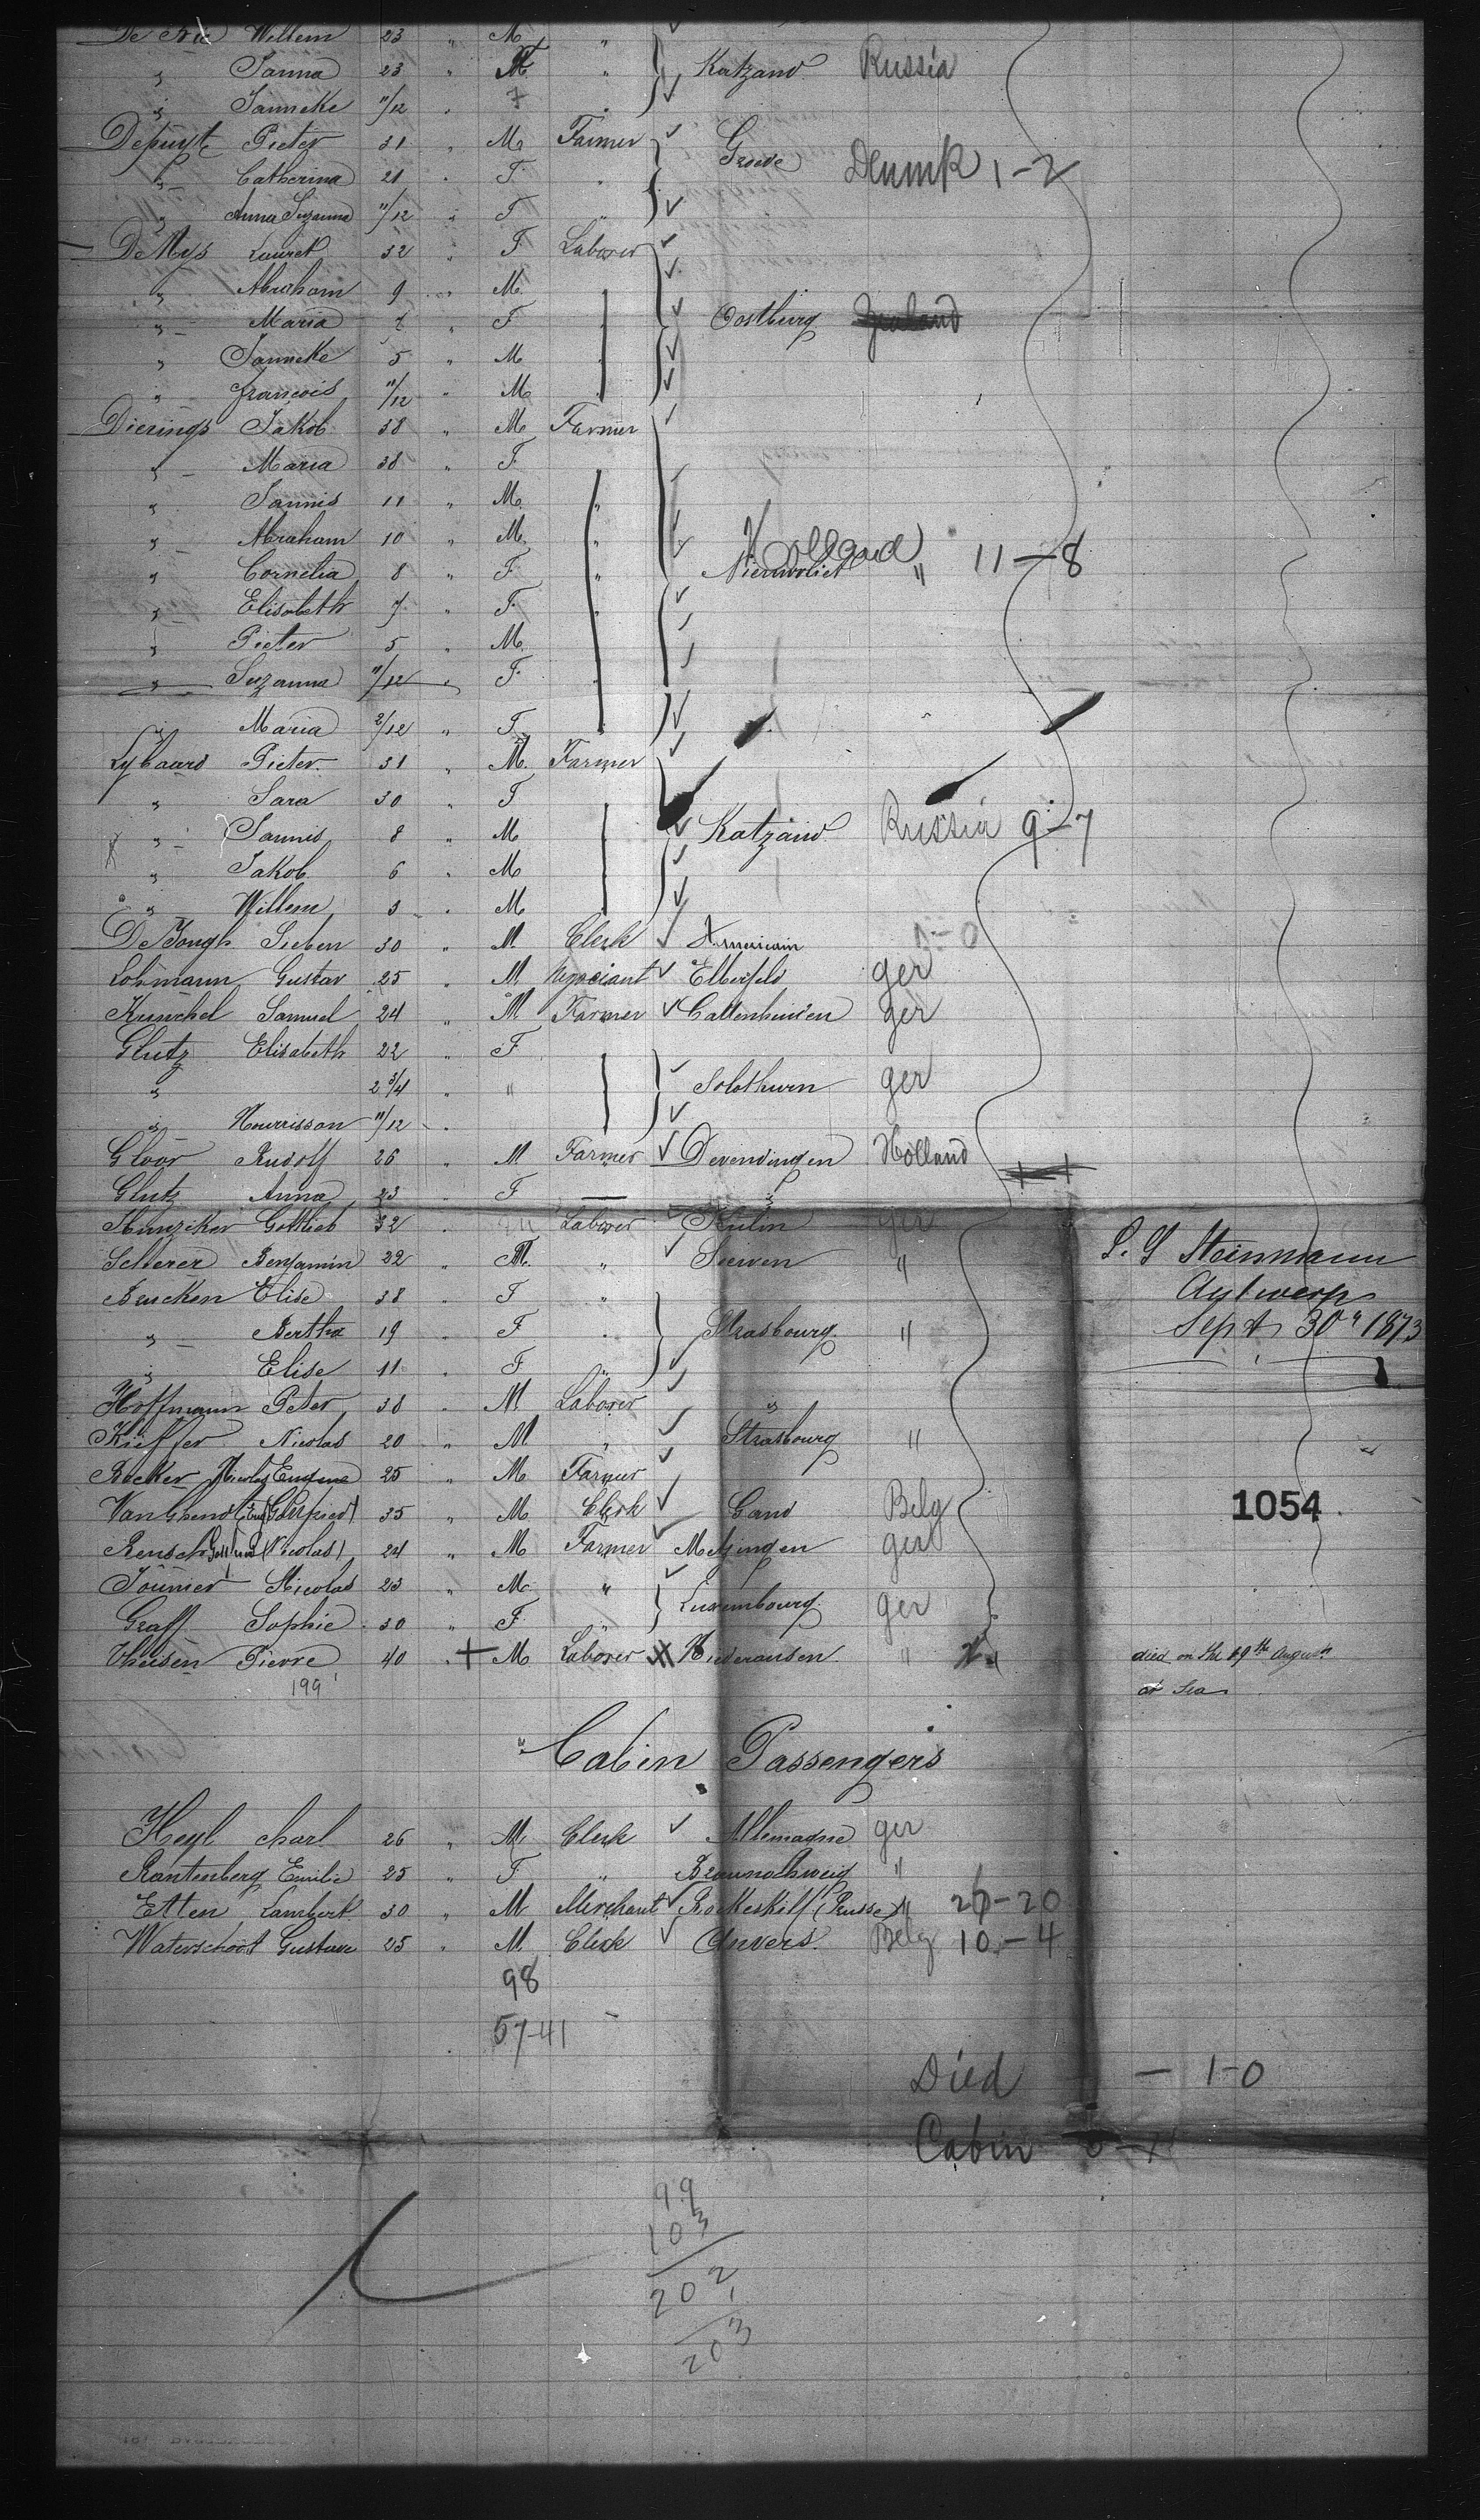 De Willem 23 " M "
" Janna 23 " F " Katzand Russia
" Janneke 11/12 " "
Depuyt Pieter 31 " M Farmer
" Catherina 21 " F " Groede Denmk 1-2
" Anna Suzanna 11/12 " F "
DeMys 32 " F Laborer
" Abraham 9 " M
" Maria 7 " F " Oostburg
" Janneke 5 " M
" François 11/12 " M
Dierings Jakob 38 " M Farmer
" Maria 38 " F
" Jannis 11 " M "
" Abraham 10 " M " Holland
" Cornelia 8 " F " Nieuwvliet " 11-8
" Elisabeth 7 " F "
" Pieter 5 " M
" Suzanna 11/12 " F
" Maria 2/12 " F
Lybaard Pieter 31 " M Farmer
" Sara 30 " F
" Jannis 8 " M Katzand Russia 9-7
" Jakob 6 " M
" Willem 3 " M
DeJongh Sieben 30 " M Clerk Americain 1-0
Lohmann Gustav 25 " M Negociant Elberfeld ger
Kunchel Samuel 24 " M Farmer ger
Glutz Elisabeth 22 " F
" 2 3/4 " " Solothurn ger
" Nourrisson 11/12 "
Gloor Rudolf 26 " M Farmer Derendingen Holland
Glutz Anna 23 " F — "
Hunziker Gottlieb 32 " Laborer Kulm ger
Scherer Benjamin 22 " M " Seewen "
Brucken Elise 38 " F "
" Bertha 19 " F " Strasbourg "
" Elise 11 " F "
L. G Steinmann
Antwerp
Sept 30th 1873
Hoffmann Peter 38 " M Laborer "
Kieffer Nicolas 20 " M " Strasbourg "
Becker Nicolas Eugene 25 " M Farmer
Van Ghendt 35 " M Clerk Gand Belg
1054
Rensch (Nicolas) 24 " M Farmer Metzingen ger
Nicolas 23 " M "
Graff Sophie 30 " F " Luxembourg ger
Theisen Pierre 40 " + M Laborer X " died on the 19th August
at Sea
199
Cabin Passengers
Heyl Charl 26 " M Clerk Allemagne ger
Rantenberg Emilie 25 " F " Braunschweig "
Etten Lambert 30 " M Merchant (Prusse) " 26-20
Waterschoot Gustave 25 " M Clerk Anvers Belg 10-4
98
57-41
Died — 1-0
Cabin
99
103
202
1
203